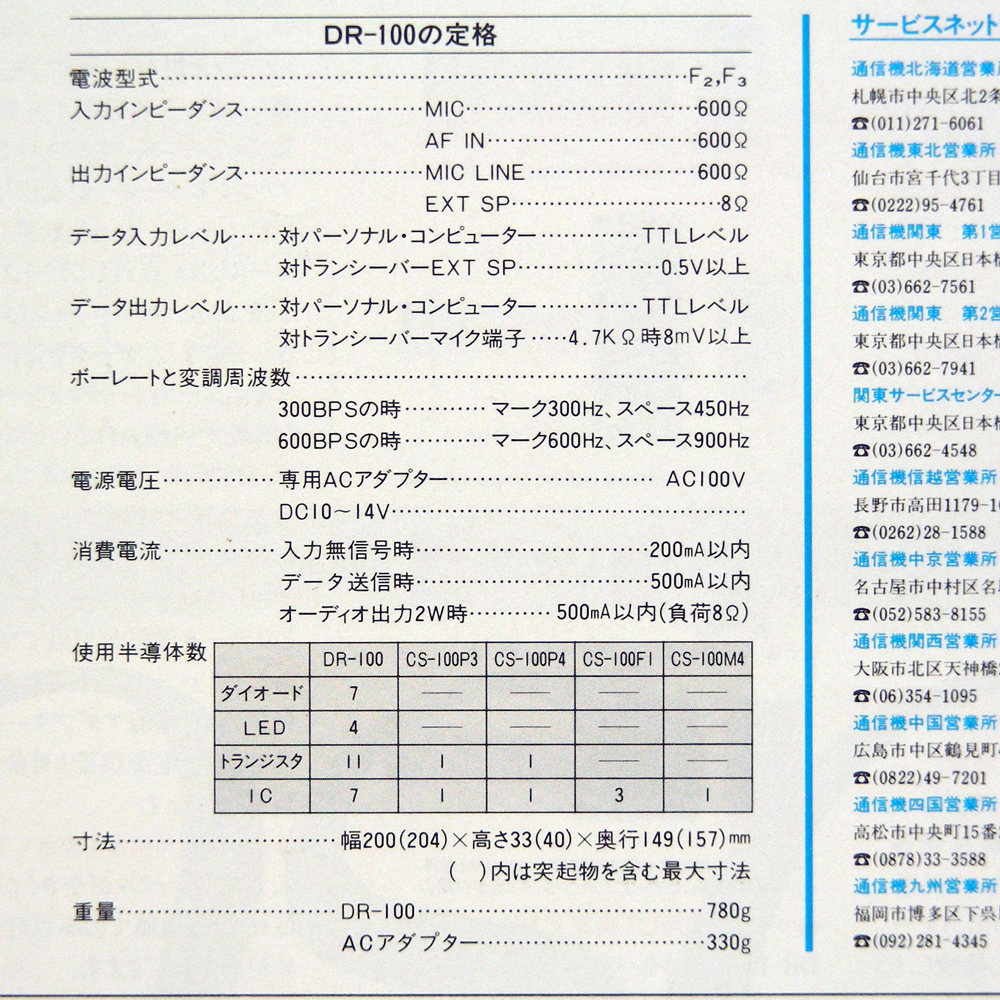 DR-100の定格
電波型式……………………………F₂,F₃
入力インピーダンス…………MIC……………600Ω
AF IN……………600Ω
出力インピーダンス…………MIC LINE…………600Ω
EXT SP……………8Ω
データ入力レベル……対パーソナル・コンピューター…………TTLレベル
対トランシーバーEXT SP…………0.5V以上
データ出力レベル……対パーソナル・コンピューター…………TTLレベル
対トランシーバーマイク端子……4.7KΩ時8mV以上
ボーレートと変調周波数……………………………
300BPSの時…………マーク300Hz、スペース450Hz
600BPSの時…………マーク600Hz、スペース900Hz
電源電圧…………専用ACアダプター…………AC100V
DC10〜14V……………………………
消費電流…………入力無信号時……………200mA以内
データ送信時……………500mA以内
オーディオ出力2W時…………500mA以内(負荷8Ω)
使用半導体数
DR-100 CS-100P3 CS-100P4 CS-100F1 CS-100M4
ダイオード 7 — — — —
LED 4 — — — —
トランジスタ 11 1 1 — —
IC 7 1 1 3 1
寸法……………幅200(204)×高さ33(40)×奥行149(157)mm
( )内は突起物を含む最大寸法
重量……………DR-100……………780g
ACアダプター……………330g
サービスネット
通信機北海道営業所
札幌市中央区北2条
☎(011)271-6061
通信機東北営業所
仙台市宮千代3丁目
☎(0222)95-4761
通信機関東 第1営
東京都中央区日本橋
☎(03)662-7561
通信機関東 第2営
東京都中央区日本橋
☎(03)662-7941
関東サービスセンター
東京都中央区日本橋
☎(03)662-4548
通信機信越営業所
長野市高田1179-10
☎(0262)28-1588
通信機中京営業所
名古屋市中村区名駅
☎(052)583-8155
通信機関西営業所
大阪市北区天神橋
☎(06)354-1095
通信機中国営業所
広島市中区鶴見町
☎(0822)49-7201
通信機四国営業所
高松市中央町15番
☎(0878)33-3588
通信機九州営業所
福岡市博多区下呉
☎(092)281-4345